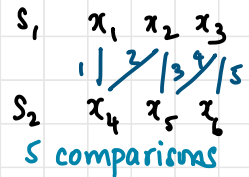 S₁ x₁ x₂ x₃
1 2 3 4 5
S₂ x₄ x₅ x₆
5 comparisons